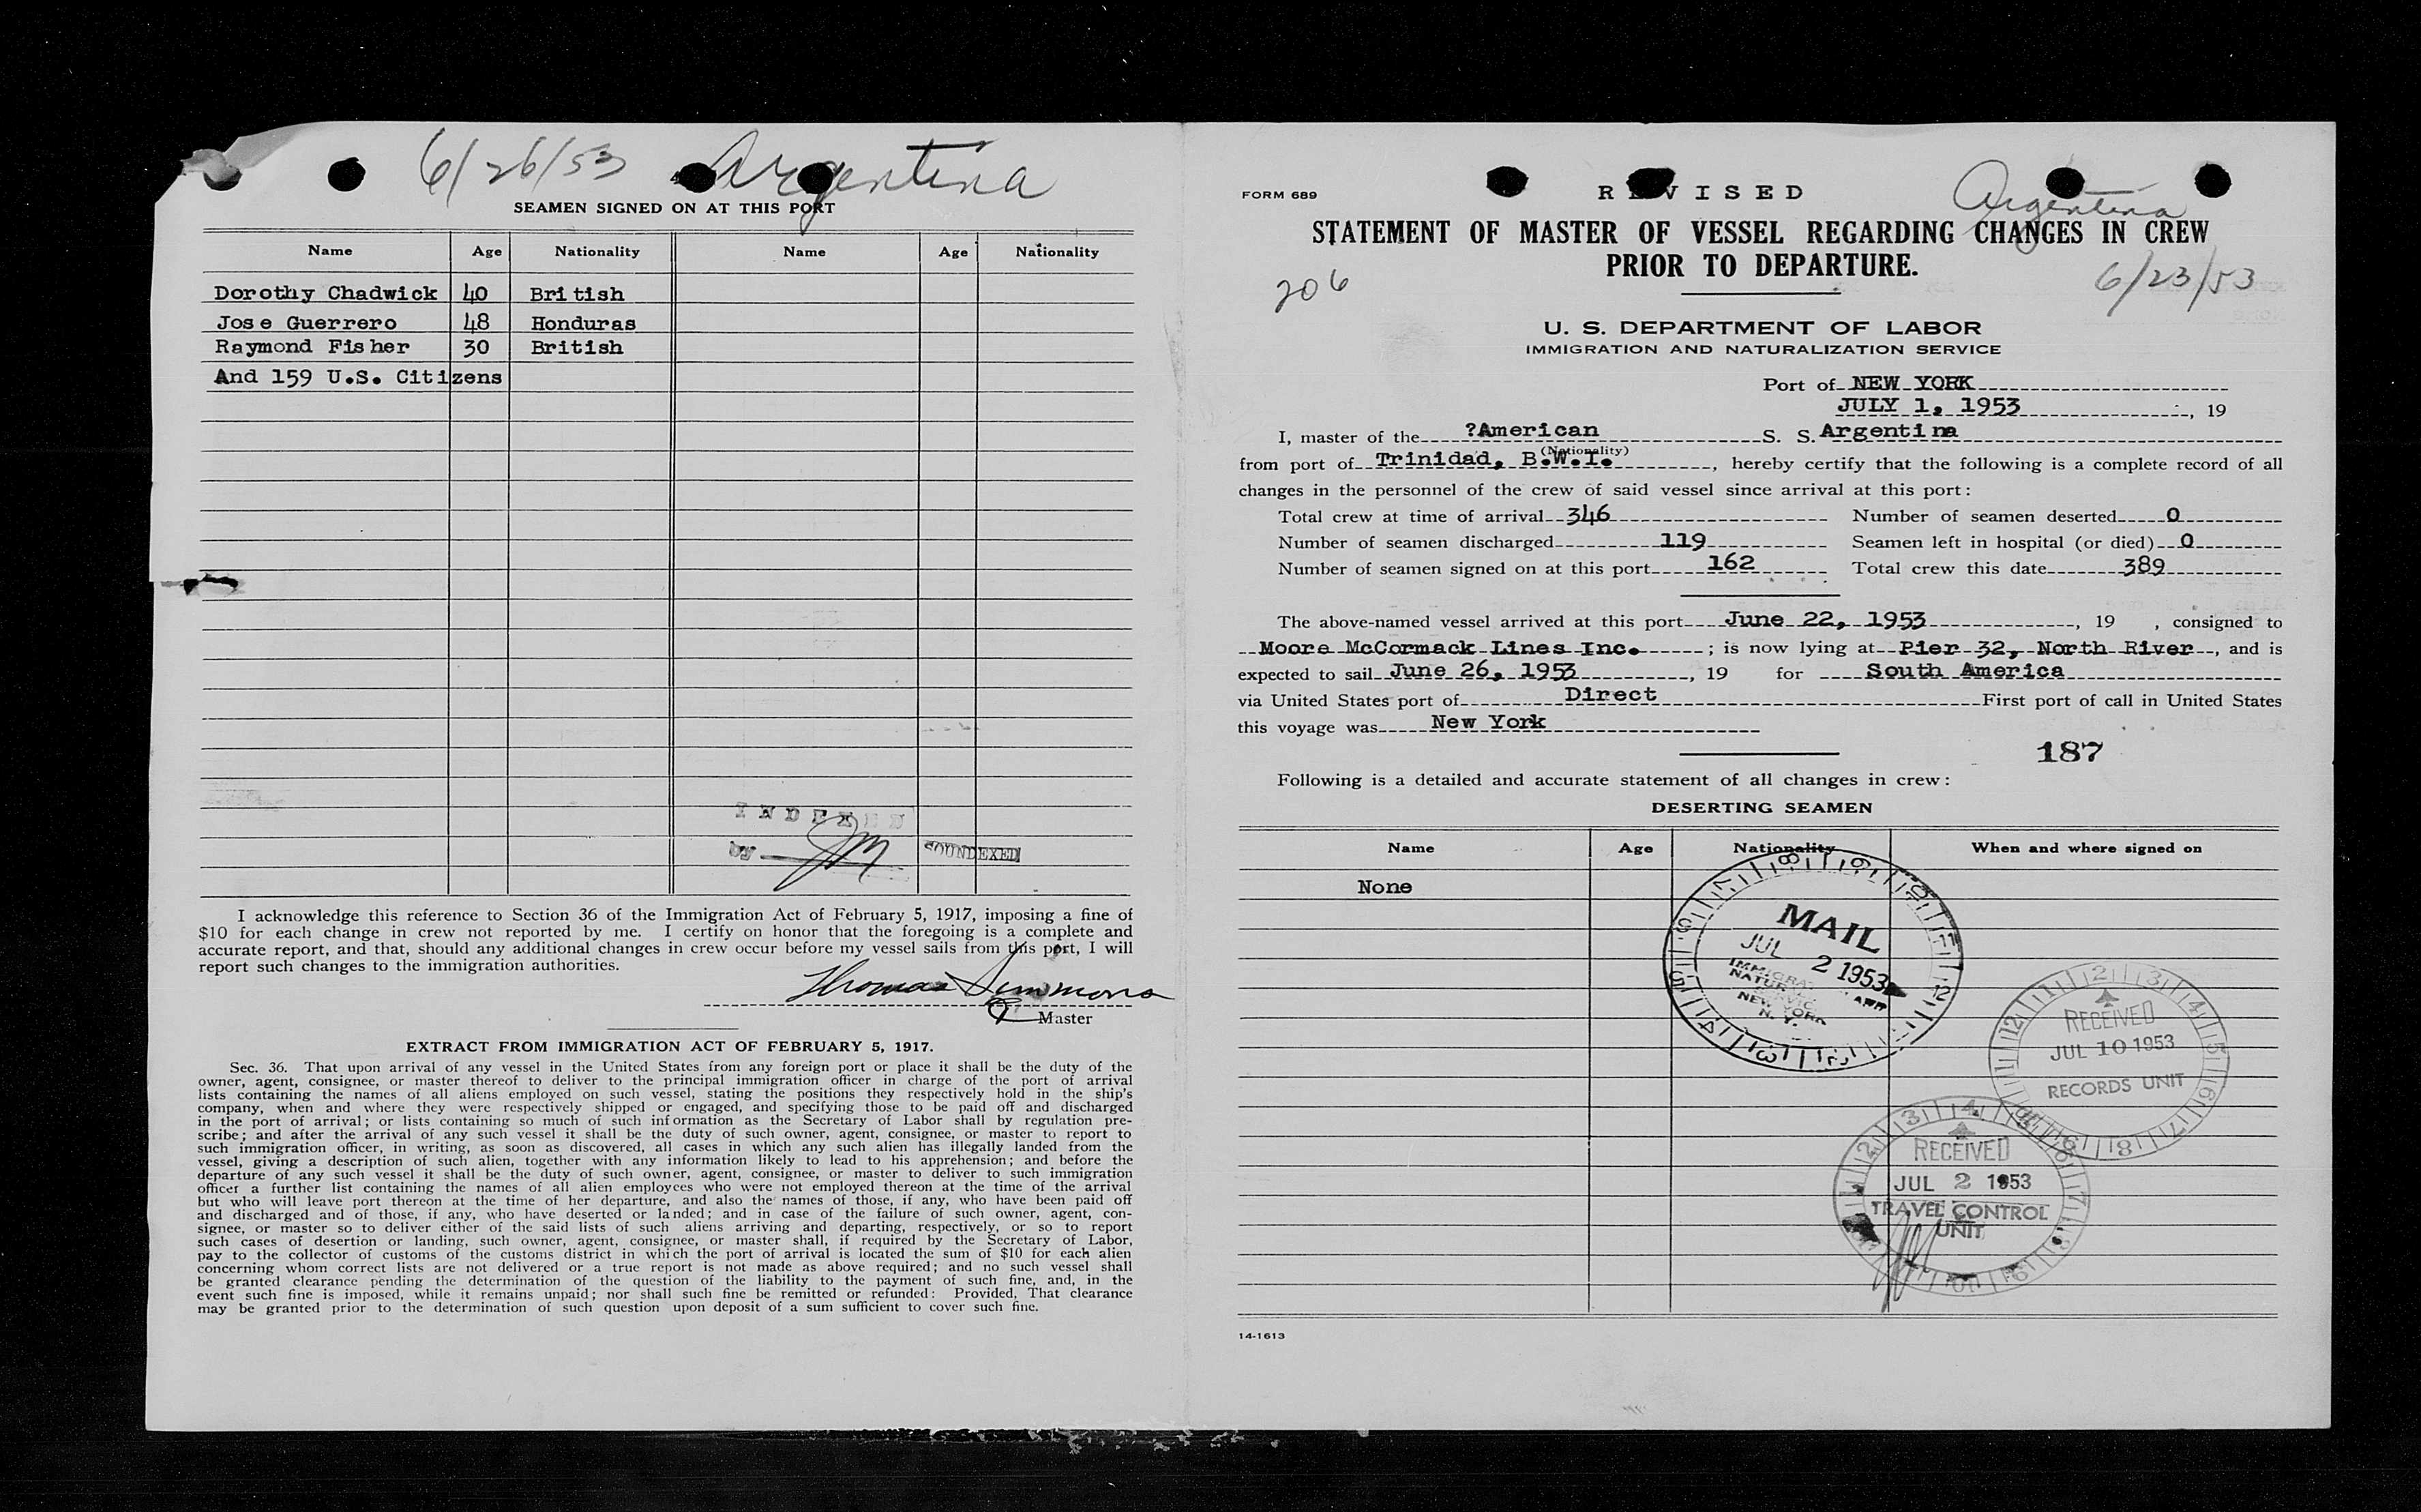 6/26/53 Argentina
SEAMEN SIGNED ON AT THIS PORT
Name Age Nationality Name Age Nationality
Dorothy Chadwick 40 British
Jose Guerrero 48 Honduras
Raymond Fisher 30 British
And 159 U.S. Citizens
INDEXED
SOUNDEXED
I acknowledge this reference to Section 36 of the Immigration Act of February 5, 1917, imposing a fine of
$10 for each change in crew not reported by me. I certify on honor that the foregoing is a complete and
accurate report, and that, should any additional changes in crew occur before my vessel sails from this port, I will
report such changes to the immigration authorities.
Thomas Simmons
Master
EXTRACT FROM IMMIGRATION ACT OF FEBRUARY 5, 1917.
Sec. 36. That upon arrival of any vessel in the United States from any foreign port or place it shall be the duty of the
owner, agent, consignee, or master thereof to deliver to the principal immigration officer in charge of the port of arrival
lists containing the names of all aliens employed on such vessel, stating the positions they respectively hold in the ship's
company, when and where they were respectively shipped or engaged, and specifying those to be paid off and discharged
in the port of arrival; or lists containing so much of such information as the Secretary of Labor shall by regulation pre-
scribe; and after the arrival of any such vessel it shall be the duty of such owner, agent, consignee, or master to report to
such immigration officer, in writing, as soon as discovered, all cases in which any such alien has illegally landed from the
vessel, giving a description of such alien, together with any information likely to lead to his apprehension; and before the
departure of any such vessel it shall be the duty of such owner, agent, consignee, or master to deliver to such immigration
officer a further list containing the names of all alien employees who were not employed thereon at the time of the arrival
but who will leave port thereon at the time of her departure, and also the names of those, if any, who have been paid off
and discharged and of those, if any, who have deserted or landed; and in case of the failure of such owner, agent, con-
signee, or master so to deliver either of the said lists of such aliens arriving and departing, respectively, or so to report
such cases of desertion or landing, such owner, agent, consignee, or master shall, if required by the Secretary of Labor,
pay to the collector of customs of the customs district in which the port of arrival is located the sum of $10 for each alien
concerning whom correct lists are not delivered or a true report is not made as above required; and no such vessel shall
be granted clearance pending the determination of the question of the liability to the payment of such fine, and, in the
event such fine is imposed, while it remains unpaid; nor shall such fine be remitted or refunded: Provided, That clearance
may be granted prior to the determination of such question upon deposit of a sum sufficient to cover such fine.
FORM 689
REVISED
Argentina
STATEMENT OF MASTER OF VESSEL REGARDING CHANGES IN CREW
PRIOR TO DEPARTURE.
206
6/23/53
U. S. DEPARTMENT OF LABOR
IMMIGRATION AND NATURALIZATION SERVICE
Port of NEW YORK
JULY 1, 1953, 19
I, master of the ?American S. S. Argentina
(Nationality)
from port of Trinidad, B.W.I., hereby certify that the following is a complete record of all
changes in the personnel of the crew of said vessel since arrival at this port:
Total crew at time of arrival 346 Number of seamen deserted 0
Number of seamen discharged 119 Seamen left in hospital (or died) 0
Number of seamen signed on at this port 162 Total crew this date 389
The above-named vessel arrived at this port June 22, 1953, 19 , consigned to
Moore McCormack Lines Inc. ; is now lying at Pier 32, North River, and is
expected to sail June 26, 1953, 19 for South America
via United States port of Direct First port of call in United States
this voyage was New York
187
Following is a detailed and accurate statement of all changes in crew:
DESERTING SEAMEN
Name Age Nationality When and where signed on
None
MAIL
JUL 2 1953
NEW YORK
N. Y.
RECEIVED
JUL 10 1953
RECORDS UNIT
RECEIVED
JUL 2 1953
TRAVEL CONTROL
UNIT
14-1613